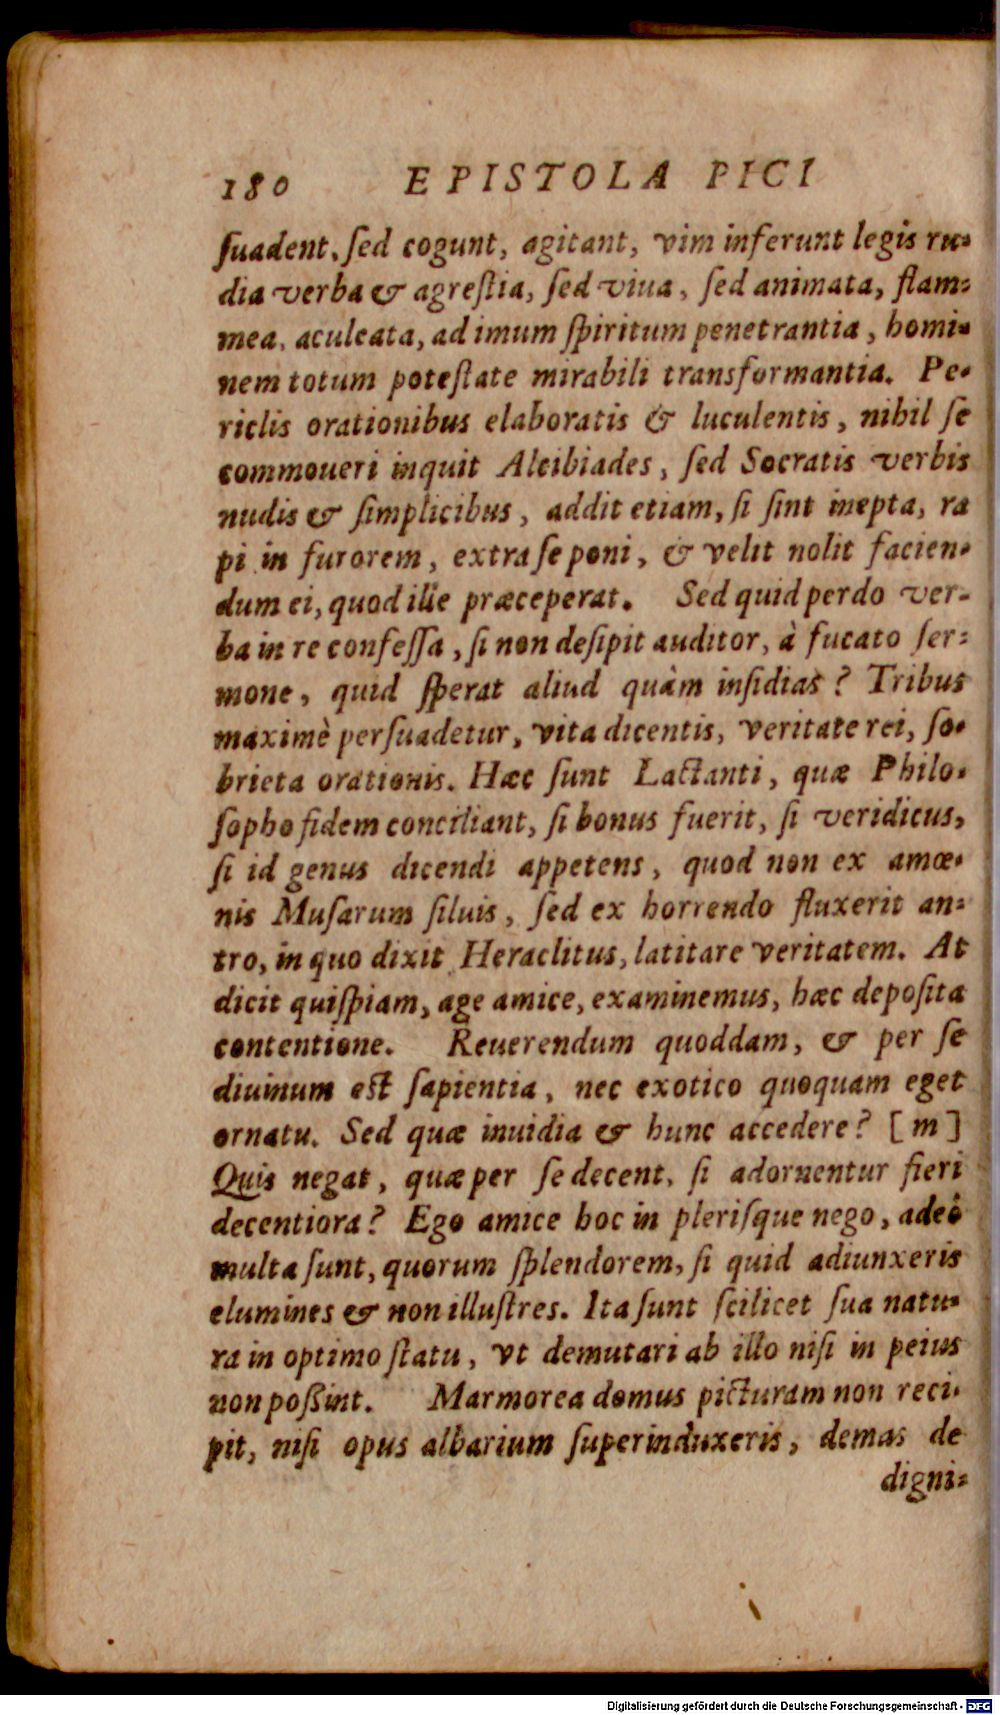 180 EPISTOLA PICI
ſuadent, ſed cogunt, agitant, vim inferunt legis ru-
dia verba & agreſtia, ſed viua, ſed animata, flam-
mea, aculeata, ad imum ſpiritum penetrantia, homi-
nem totum poteſtate mirabili transformantia. Pe-
riclis orationibus elaboratis & luculentis, nihil ſe
commoueri inquit Alcibiades, ſed Socratis verbis
nudis & ſimplicibus, addit etiam, ſi ſint inepta, ra
pi in furorem, extra ſe poni, & velit nolit facien-
dum ei, quod ille præceperat. Sed quid perdo ver-
ba in re confeſſa, ſi non deſipit auditor, à fucato ſer-
mone, quid ſperat aliud quàm inſidias? Tribus
maximè perſuadetur, vita dicentis, veritate rei, ſo-
brieta orationis. Hæc ſunt Lactanti, quæ Philo-
ſopho fidem conciliant, ſi bonus fuerit, ſi veridicus,
ſi id genus dicendi appetens, quod non ex amœ-
nis Muſarum ſiluis, ſed ex horrendo fluxerit an-
tro, in quo dixit Heraclitus, latitare veritatem. At
dicit quiſpiam, age amice, examinemus, hæc depoſita
contentione. Reuerendum quoddam, & per ſe
diuinum est ſapientia, nec exotico quoquam eget
ornatu. Sed quæ inuidia & hunc accedere? [m]
Quis negat, quæ per ſe decent, ſi adornentur fieri
decentiora? Ego amice hoc in pleriſque nego, adeò
multa ſunt, quorum ſplendorem, ſi quid adiunxeris
elumines & non illuſtres. Ita ſunt ſcilicet ſua natu-
ra in optimo ſtatu, vt demutari ab illo niſi in peius
non poßint. Marmorea domus picturam non reci-
pit, niſi opus albarium ſuperinduxeris, demas de
digni-
Digitalisierung gefördert durch die Deutsche Forschungsgemeinschaft - DFG